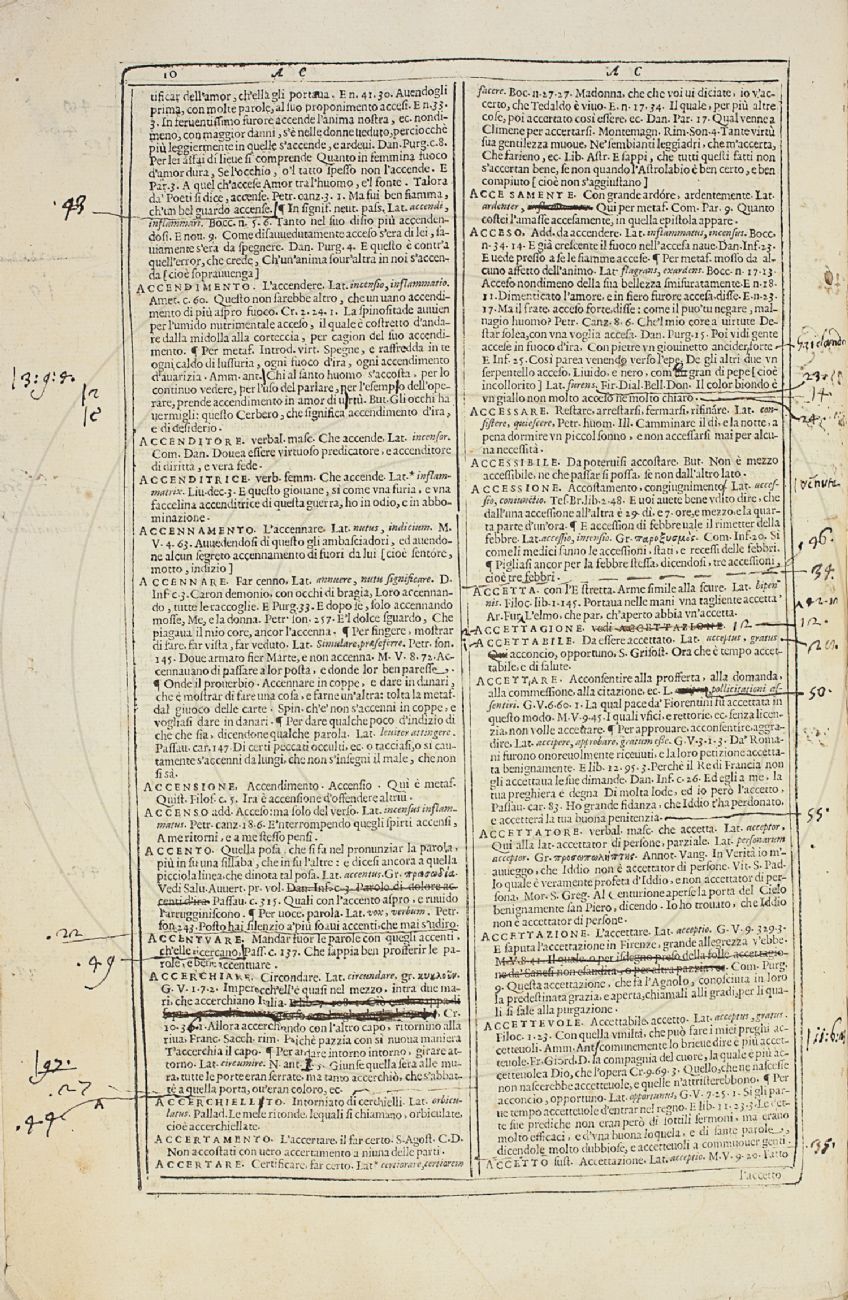 10 A C
A C
tificar dell'amor, ch'ella gli portaua. E n. 41. 30. Auendogli
prima, con molte parole, al suo proponimento accesi. E n. 33.
3. In feruentissimo furore accende l'anima nostra, ec. nondi-
meno, con maggior danni, s'è nelle donne ueduto, perciocchè
più leggiermente in quelle s'accende, e ardeui. Dan. Purg. c. 8.
Per lei assai di lieue si comprende Quanto in femmina fuoco
d'amor dura, Se l'occhio, o'l tatto spesso non l'accende. E
Par. 3. A quel ch'accese Amor tra l'huomo, e'l fonte. Talora
da' Poeti si dice, accense. Petr. canz. 3. 1. Ma sui ben fiamma,
ch'un bel guardo accense. ¶ In signif. neut. pass. Lat. accendi,
inflammari. Bocc. n. 5. 6. Tanto nel suo disio più accenden-
dosi. E non. 9. Come disauuedutamente acceso s'era di lei, sa-
uiamente s'era da spegnere. Dan. Purg. 4. E questo è contr'a
quell'error, che crede, Ch'un'anima sour'altra in noi s'accen-
da [cioè soprauuenga]
ACCENDIMENTO. L'accendere. Lat. incensio, inflammatio.
Amet. c. 60. Questo non sarebbe altro, che un uano accendi-
mento di più aspro fuoco. Cr. 2. 24. 1. La spinositade auuien
per l'umido nutrimentale acceso, il quale è costretto d'anda-
re dalla midolla alla corteccia, per cagion del suo accendi-
mento. ¶ Per metaf. Introd. virt. Spegne, e raffredda in te
ogni caldo di lussuria, ogni fuoco d'ira, ogni accendimento
d'auarizia. Amm. ant. Chi al santo huomo s'accosta, per lo
continuo vedere, per l'uso del parlare, per l'esempio dell'ope-
rare, prende accendimento in amor di uirtù. But. Gli occhi ha
uermigli: questo Cerbero, che significa accendimento d'ira,
e di desiderio.
ACCENDITORE. verbal. masc. Che accende. Lat. incensor.
Com. Dan. Douea essere virtuoso predicatore, e accenditore
di diritta, e vera fede.
ACCENDITRICE. verb. femm. Che accende. Lat.* inflam-
matrix. Liu. dec. 3. E questo giouane, si come vna furia, e vna
faccelina accenditrice di questa guerra, ho in odio, e in abbo-
minazione.
ACCENNAMENTO. L'accennare. Lat. nutus, indicium. M.
V. 4. 63. Auuedendosi di questo gli ambasciadori, ed auendo-
ne alcun segreto accennamento di fuori da lui [cioè sentore,
motto, indizio]
ACCENNARE. Far cenno. Lat. annuere, nutu significare. D.
Inf. c. 3. Caron demonio, con occhi di bragia, Loro accennan-
do, tutte le raccoglie. E Purg. 33. E dopo se, solo accennando
mosse, Me, e la donna. Petr. son. 257. E'l dolce sguardo, Che
piagaua il mio core, ancor l'accenna. ¶ Per fingere, mostrar
di fare, far vista, far veduto. Lat. Simulare, praeseferre. Petr. son.
145. Doue armato fier Marte, e non accenna. M. V. 8. 72. Ac-
cennauano di passare a lor posta, e donde lor ben paresse.
¶ Onde il prouerbio. Accennare in coppe, e dare in danari,
che è mostrar di fare una cosa, e farne un'altra: tolta la metaf.
dal giuoco delle carte. Spin. ch'e' non s'accenni in coppe, e
vogliasi dare in danari. ¶ Per dare qualche poco d'indizio di
che che sia, dicendone qualche parola. Lat. leuiter attingere.
Passau. car. 147. Di certi peccati occulti, ec. o tacciasi, o si cau-
tamente s'accenni da lungi, che non s'insegni il male, che non
si sà.
ACCENSIONE. Accendimento. Accensio. Qui è metaf.
Quist. Filos. c. 5. Ira è accensione d'offendere altrui.
ACCENSO add. Acceso: ma solo del verso. Lat. incensus inflam-
matus. Petr. canz. 18. 6. E'nterrompendo quegli spirti accensi,
A me ritorni, e a me stesso pensi.
ACCENTO. Quella posa, che si fa nel pronunziar la parola,
più in su una sillaba, che in su l'altre: e dicesi ancora a quella
picciola linea, che dinota tal posa. Lat. accentus. Gr. προσωδία.
Vedi Salu. Auuert. pr. vol. Dan. Inf. c. 3. Parole di dolore ac-
centi d'ira. Passau. c. 315. Quali con l'accento aspro, e ruuido
l'arrugginiscono. ¶ Per uoce, parola. Lat. vox, verbum. Petr.
son. 243. Posto hai silenzio a' più soaui accenti, che mai s'udiro.
ACCENTVARE. Mandar fuor le parole con quegli accenti,
ch'elle ricercano. Pass. c. 137. Che sappia ben profferir le pa-
role, e bene accentuare.
ACCERCHIARE. Circondare. Lat. circundare, gr. κυκλοῦν.
G. V. 1. 7. 2. Imperocch'ell'è quasi nel mezzo, intra due ma-
ri, che accerchiano Italia. Cr.
10. 36. 1. Allora accerchiando con l'altro capo, ritornino alla
riua. Franc. Sacch. rim. Poichè pazzia con si nuoua maniera
T'accerchia il capo. ¶ Per andare intorno intorno, girare at-
torno. Lat. circumire. N. ant. Giunse quella sera alle mu-
ra, tutte le porte eran serrate, ma tanto accerchiò, che s'abbat-
tè a quella porta, ou'eran coloro, ec.
ACCERCHIELLATO. Intorniato di cerchielli. Lat. orbicu-
latus. Pallad. Le mele ritonde, lequali si chiamano, orbiculate,
cioè accerchiellate.
ACCERTAMENTO. L'accertare, il far certo. S. Agost. C. D.
Non accostati con uero accertamento a niuna delle parti.
ACCERTARE. Certificare, far certo. Lat.* certiorare, certiorem
facere. Boc. n. 27. 27. Madonna, che che voi ui diciate, io v'ac-
certo, che Tedaldo è viuo. E. n. 17. 34. Il quale, per più altre
cose, poi accertato così essere, ec. Dan. Par. 17. Qual venne a
Climene per accertarsi. Montemagn. Rim. Son. 4. Tante virtù
sua gentilezza muoue, Ne' sembianti leggiadri, che m'accerta,
Che sarieno, ec. Lib. Astr. E sappi, che tutti questi fatti non
s'accertan bene, se non quando l'Astrolabio è ben certo, e ben
compiuto [cioè non s'aggiustano]
ACCESAMENTE. Con grande ardóre, ardentemente. Lat.
ardenter, Qui per metaf. Com. Par. 9. Quanto
costei l'amasse accesamente, in quella epistola appare.
ACCESO. Add. da accendere. Lat. inflammatus, incensus. Bocc.
n. 34. 14. E già crescente il fuoco nell'accesa naue. Dan. Inf. 23.
E uede presso a se le fiamme accese. ¶ Per metaf. mosso da al-
cuno affetto dell'animo. Lat. flagrans, exardens. Bocc. n. 17. 13.
Acceso nondimeno della sua bellezza smisuratamente. E n. 18.
11. Dimenticato l'amore, e in fiero furore accesa, disse. E. n. 23.
17. Ma il frate, acceso forte, disse: come il puo' tu negare, mal-
uagio huomo? Petr. Canz. 8. 6. Che'l mio core a uirtute De-
star solea, con vna voglia accesa. Dan. Purg. 15. Poi vidi gente
accese in fuoco d'ira. Con pietre vn giouinetto ancider, forte
E Inf. 25. Così parea venendo verso l'epe, De gli altri due vn
serpentello acceso, Liuido, e nero, com gran di pepe [cioè
incollorito] Lat. furens. Fir. Dial. Bell. Don. Il color biondo è
vn giallo non molto acceso ne molto chiaro.
ACCESSARE. Restare, arrestarsi, fermarsi, rifinare. Lat. con-
sistere, quiescere. Petr. huom. Ill. Camminare il dì, e la notte, a
pena dormire vn piccol sonno, e non accessarsi mai per alcu-
na necessità.
ACCESSIBILE. Da poteruisi accostare. But. Non è mezzo
accessibile, ne che passar si possa, se non dall'altro lato.
ACCESSIONE. Accostamento, congiugnimento. Lat. acces-
sio, coniunctio. Tes. Br. lib. 2. 48. E uoi auete bene vdito dire, che
dall'una accessione all'altra è 29. dì. e 7. ore, e mezzo, e la quar-
ta parte d'un'ora. ¶ E accession di febbre uale il rimetter della
febbre. Lat. accessio, intensio. Gr. παροξυσμός. Com. Inf. 20. Si
come li medici sanno le accessioni, stati, e recessi delle febbri.
¶ Pigliasi ancor per la febbre stessa, dicendosi, tre accessioni,
cioè tre febbri.
ACCETTA. con l'E stretta. Arme simile alla scure. Lat. bipen-
nis. Filoc. lib. 1. 145. Portaua nelle mani vna tagliente accetta
Ar. Fur. L'elmo, che par, ch'aperto abbia vn'accetta.
ACCETTAGIONE. vedi ACCETTAZIONE. 12
ACCETTABILE. Da essere accettato. Lat. acceptus, gratus
Qui acconcio, opportuno. S. Grisost. Ora che è tempo accet-
tabile, e di salute.
ACCETTARE. Acconsentire alla profferta, alla domanda,
alla commessione, alla citazione, ec. L. pollicitationi as-
sentiri. G. V. 6. 60. 1. La qual pace da' Fiorentini fu accettata in
questo modo. M. V. 9. 45. I quali vfici, e rettorie, ec. senza licen-
zia, non volle accettare. ¶ Per approuare, acconsentire, aggra-
dire. Lat. accipere, approbare, gratum esse. G. V. 3. 1. 3. Da' Roma-
ni furono onoreuolmente riceuuti, e la loro petizione accetta-
ta benignamente. E lib. 12. 95. 3. Perchè il Re di Francia non
gli accettaua le sue dimande. Dan. Inf. c. 26. Ed egli a me, la
tua preghiera è degna Di molta lode, ed io però l'accetto.
Passau. car. 83. Ho grande fidanza, che Iddio t'ha perdonato,
e accetterà la tua buona penitenzia.
ACCETTATORE. verbal. masc. che accetta. Lat. acceptor.
Qui alla lat. accettator di persone, parziale. Lat. personarum
acceptor. Gr. προσωπολήπτης. Annot. Vang. In Verità io m'-
auueggo, che Iddio non è accettator di persone. Vit. S. Pad.
Io quale è veramente profeta d'Iddio, e non accettator di per-
sona. Mor. S. Greg. Al Centurione aperse la porta del Cielo
benignamente san Piero, dicendo. Io ho trouato, che Iddio
non è accettator di persone.
ACCETTAZIONE. L'accettare. Lat. acceptio. G. V. 9. 329. 3.
E saputa l'accettazione in Firenze, grande allegrezza v'ebbe.
M. V. 8. 41. Il quale, o per isdegno preso della folle accettagio-
ne de' Sanesi non esaudita, o per altra pazzia, ec. Com. Purg.
9. Questa accettazione, che fa l'Agnolo, conosciuta in loro
la predestinata grazia, e aperta, chiamali alli gradi, per li qua-
li si sale alla purgazione.
ACCETTEVOLE. Accettabile, accetto. Lat. acceptus, gratus.
Filoc. 1. 23. Con quella vmiltà, che può fare i miei preghi ac-
cetteuoli. Amm. Ant. comunemente lo brieue dire è più accet-
teuole. Fr. Giord. D. la compagnia del cuore, la quale è più ac-
cetteuole a Dio, che l'opera Cr. 9. 69. 3. Quello, che ne nascesse
non nascerebbe accetteuole, e quelle n'attristerebbono. ¶ Per
acconcio, opportuno. Lat. opportunus. G. V. 7. 25. 1. Si gli par-
ue tempo accetteuole d'entrar nel regno. E lib. 11. 23. 3. Le det-
te sue prediche non eran però di sottili sermoni, ma erano
molto efficaci, e d'vna buona loquela, e di sante parole,
dicendole molto dubbiose, e accetteuoli a commouer genti.
ACCETTO sust. Accettazione. Lat. acceptio. M. V. 9. 20. Fatto
l'accetto
.43
13.9.8.
.22
.49
.27
.44
24.
.46.
34.
12.
50.
55.
35.